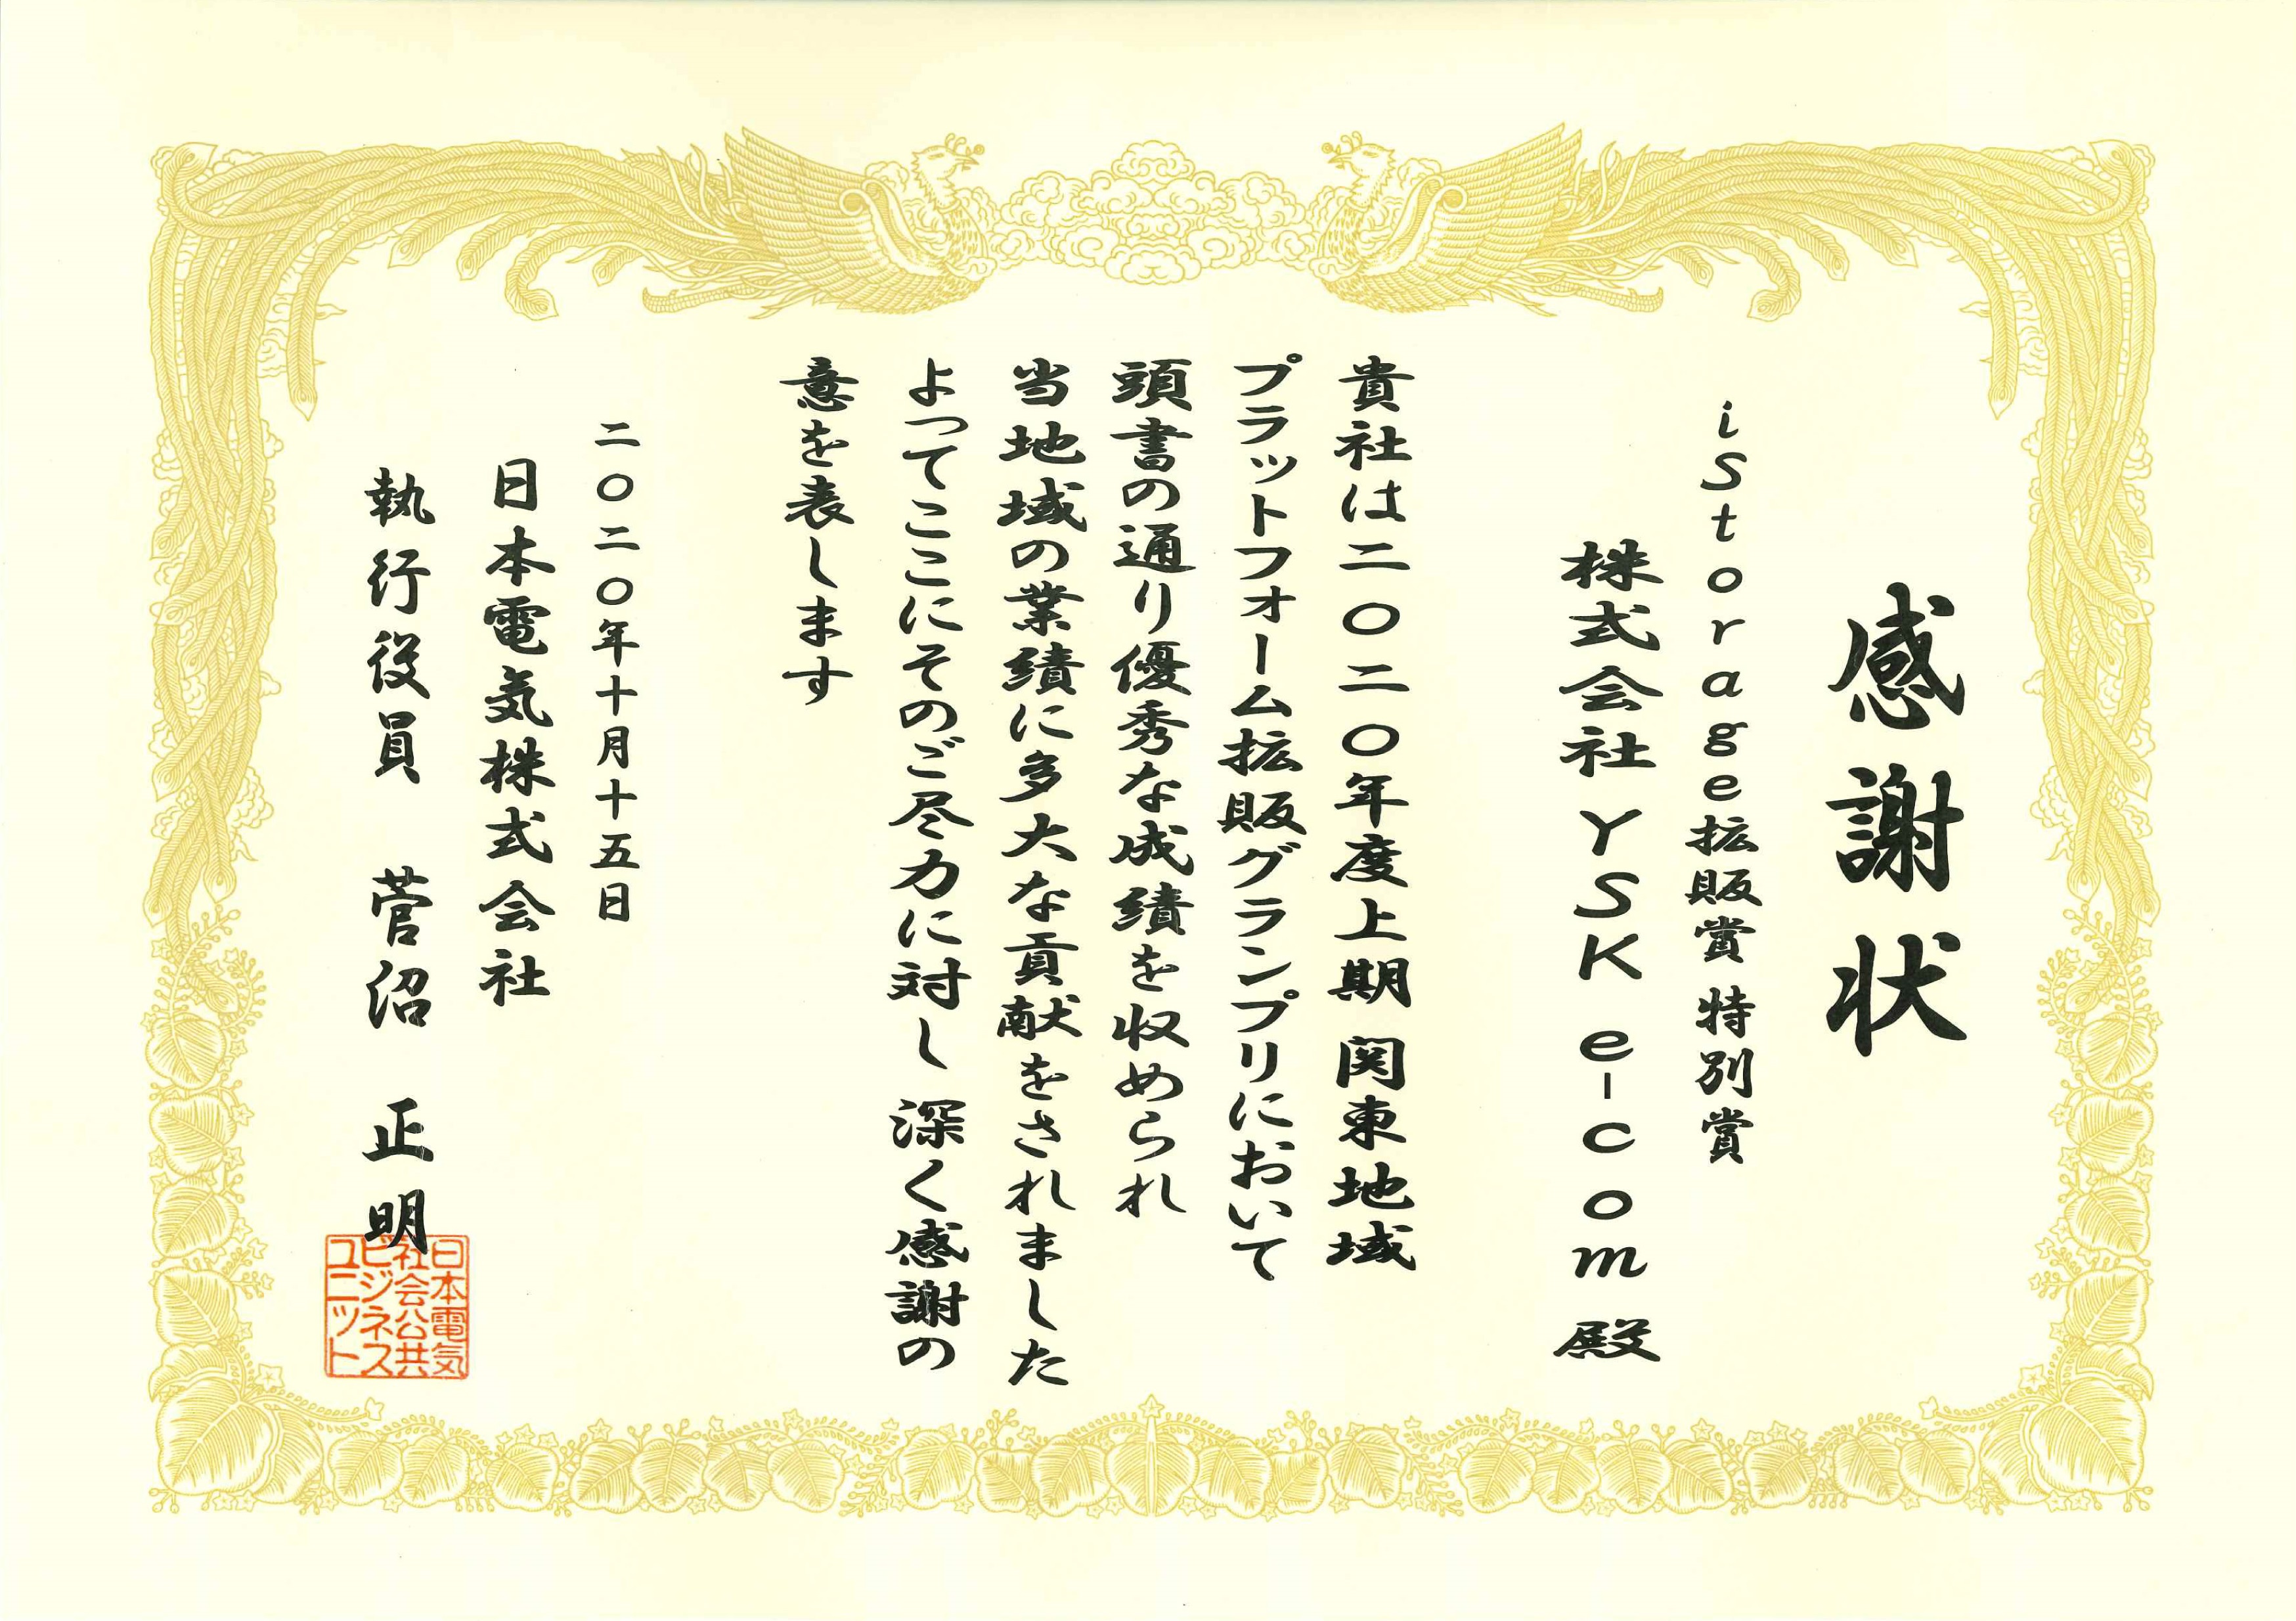 感謝状
iStorage拡販賞 特別賞
株式会社YSK e-com 殿
貴社は二〇二〇年度上期 関東地域
プラットフォーム拡販グランプリにおいて
頭書の通り優秀な成績を収められ
当地域の業績に多大な貢献をされました
よってここにそのご尽力に対し 深く感謝の
意を表します
二〇二〇年十月十五日
日本電気株式会社
執行役員 菅沼 正明
日本電気
社会公共
ビジネス
ユニット